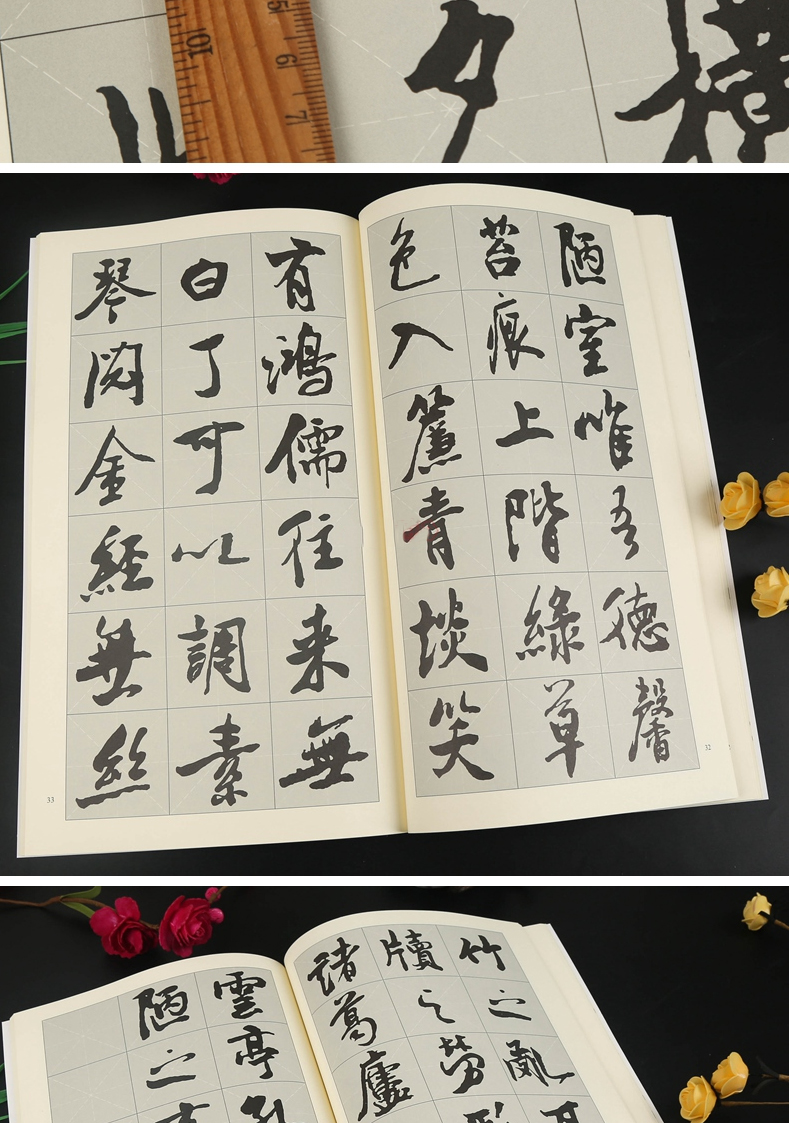 10
5
6
7
陋室惟吾德馨
苔痕上階綠草
色入簾青談笑
32
有鴻儒往来無
白丁可以調素
琴閱金經無絲
33
竹之亂耳
牘之勞形
諸葛廬
雲亭孔
陋之有